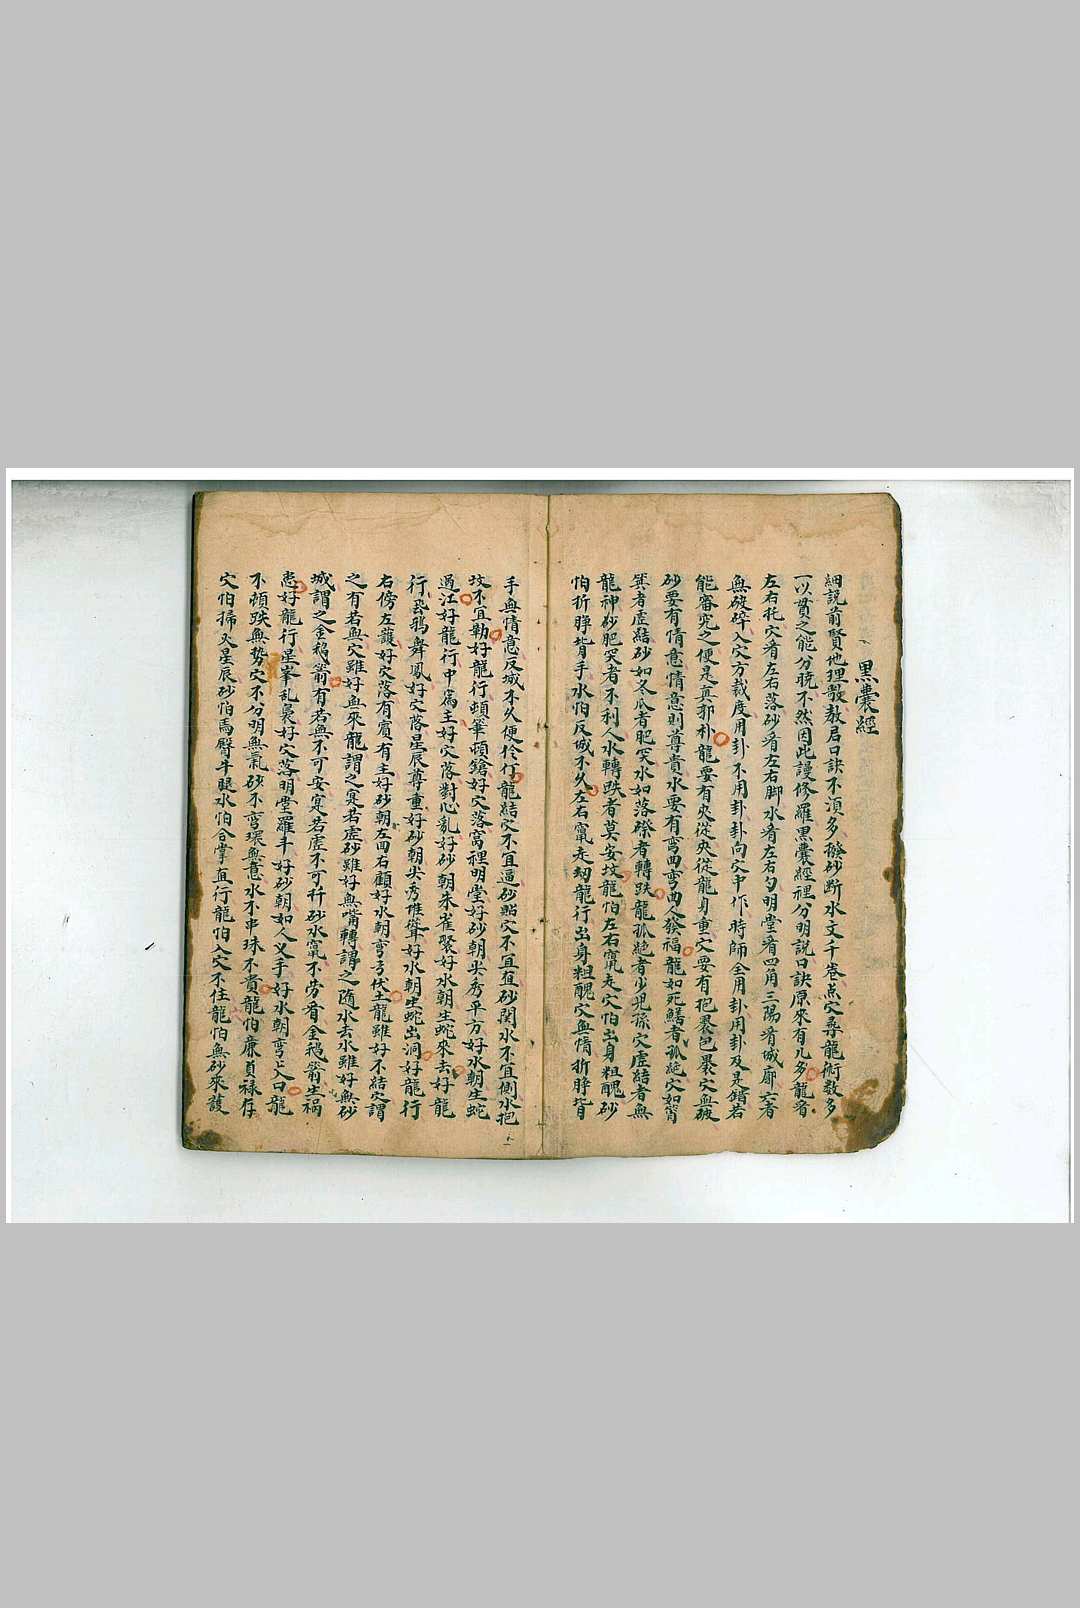 黒囊經
細説前賢地理骰敖居口訣不湏多撥砂斷水文千卷点穴尋龍術数多
一以貫之能分晓不然因此謾修羅黒囊經裡分明説口訣原來有几多龍看
左右托穴看左右落砂看左右脚水看左右勺明堂看四角三陽看城廓六者
無破碎入穴方裁度用卦不用卦卦向穴中作時師全用卦用卦反是錯若
能審究之便是真郭朴龍要有夾從夾從龍身重穴要有抱裹包裹穴無破
砂要有情意情意則尊貴水要有弯曲弯曲人發福龍如死鱔者孤絶穴如筲
箕者虚結砂如冬瓜者肥哭水如落磜者轉跌龍孤絶者少児孫穴虚結者無
龍神砂肥哭者不利人水轉跌者莫安坟龍怕左右竄走穴怕出身粗醜砂
怕折脾背手水怕反城不久左右竄走刼龍行出身粗醜穴無情折脾背
手無情意反城不久便伶仃龍結穴不宜逼砂貼穴不宜直砂関水不宜側水把
坟不宜勒好龍行頓筆頓鎗好穴落窩裡明堂好砂朝尖秀平方好水朝生蛇
過江好龍行中爲主好穴落對心乳好砂朝朱雀聚好水朝生蛇來去好龍
行飛鴉舞鳳好穴落星辰尊重好砂朝尖秀堆聳好水朝生蛇出洞好龍行
右傍左護好穴落有賓有主好砂朝左回右顧好水朝弯弓伏土龍雖好不結穴謂
之有若無穴雖好無來龍謂之寔若虚砂雖好無嘴轉謂之随水去水雖好無砂
城謂之金鵝箭有若無不可安寔若虚不可扦砂水竄不劳看金鵝箭生禍
患好龍行星峯乱裊好穴落明堂羅丰好砂朝如人乂手好水朝弯丈曰龍
不頓跌無势穴不分明無氣砂不弯環無意水不串珠不貴龍怕廉貞祿存
穴怕掃乂星辰砂怕馬臀牛腿水怕合掌直行龍怕入穴不住龍怕無砂來護